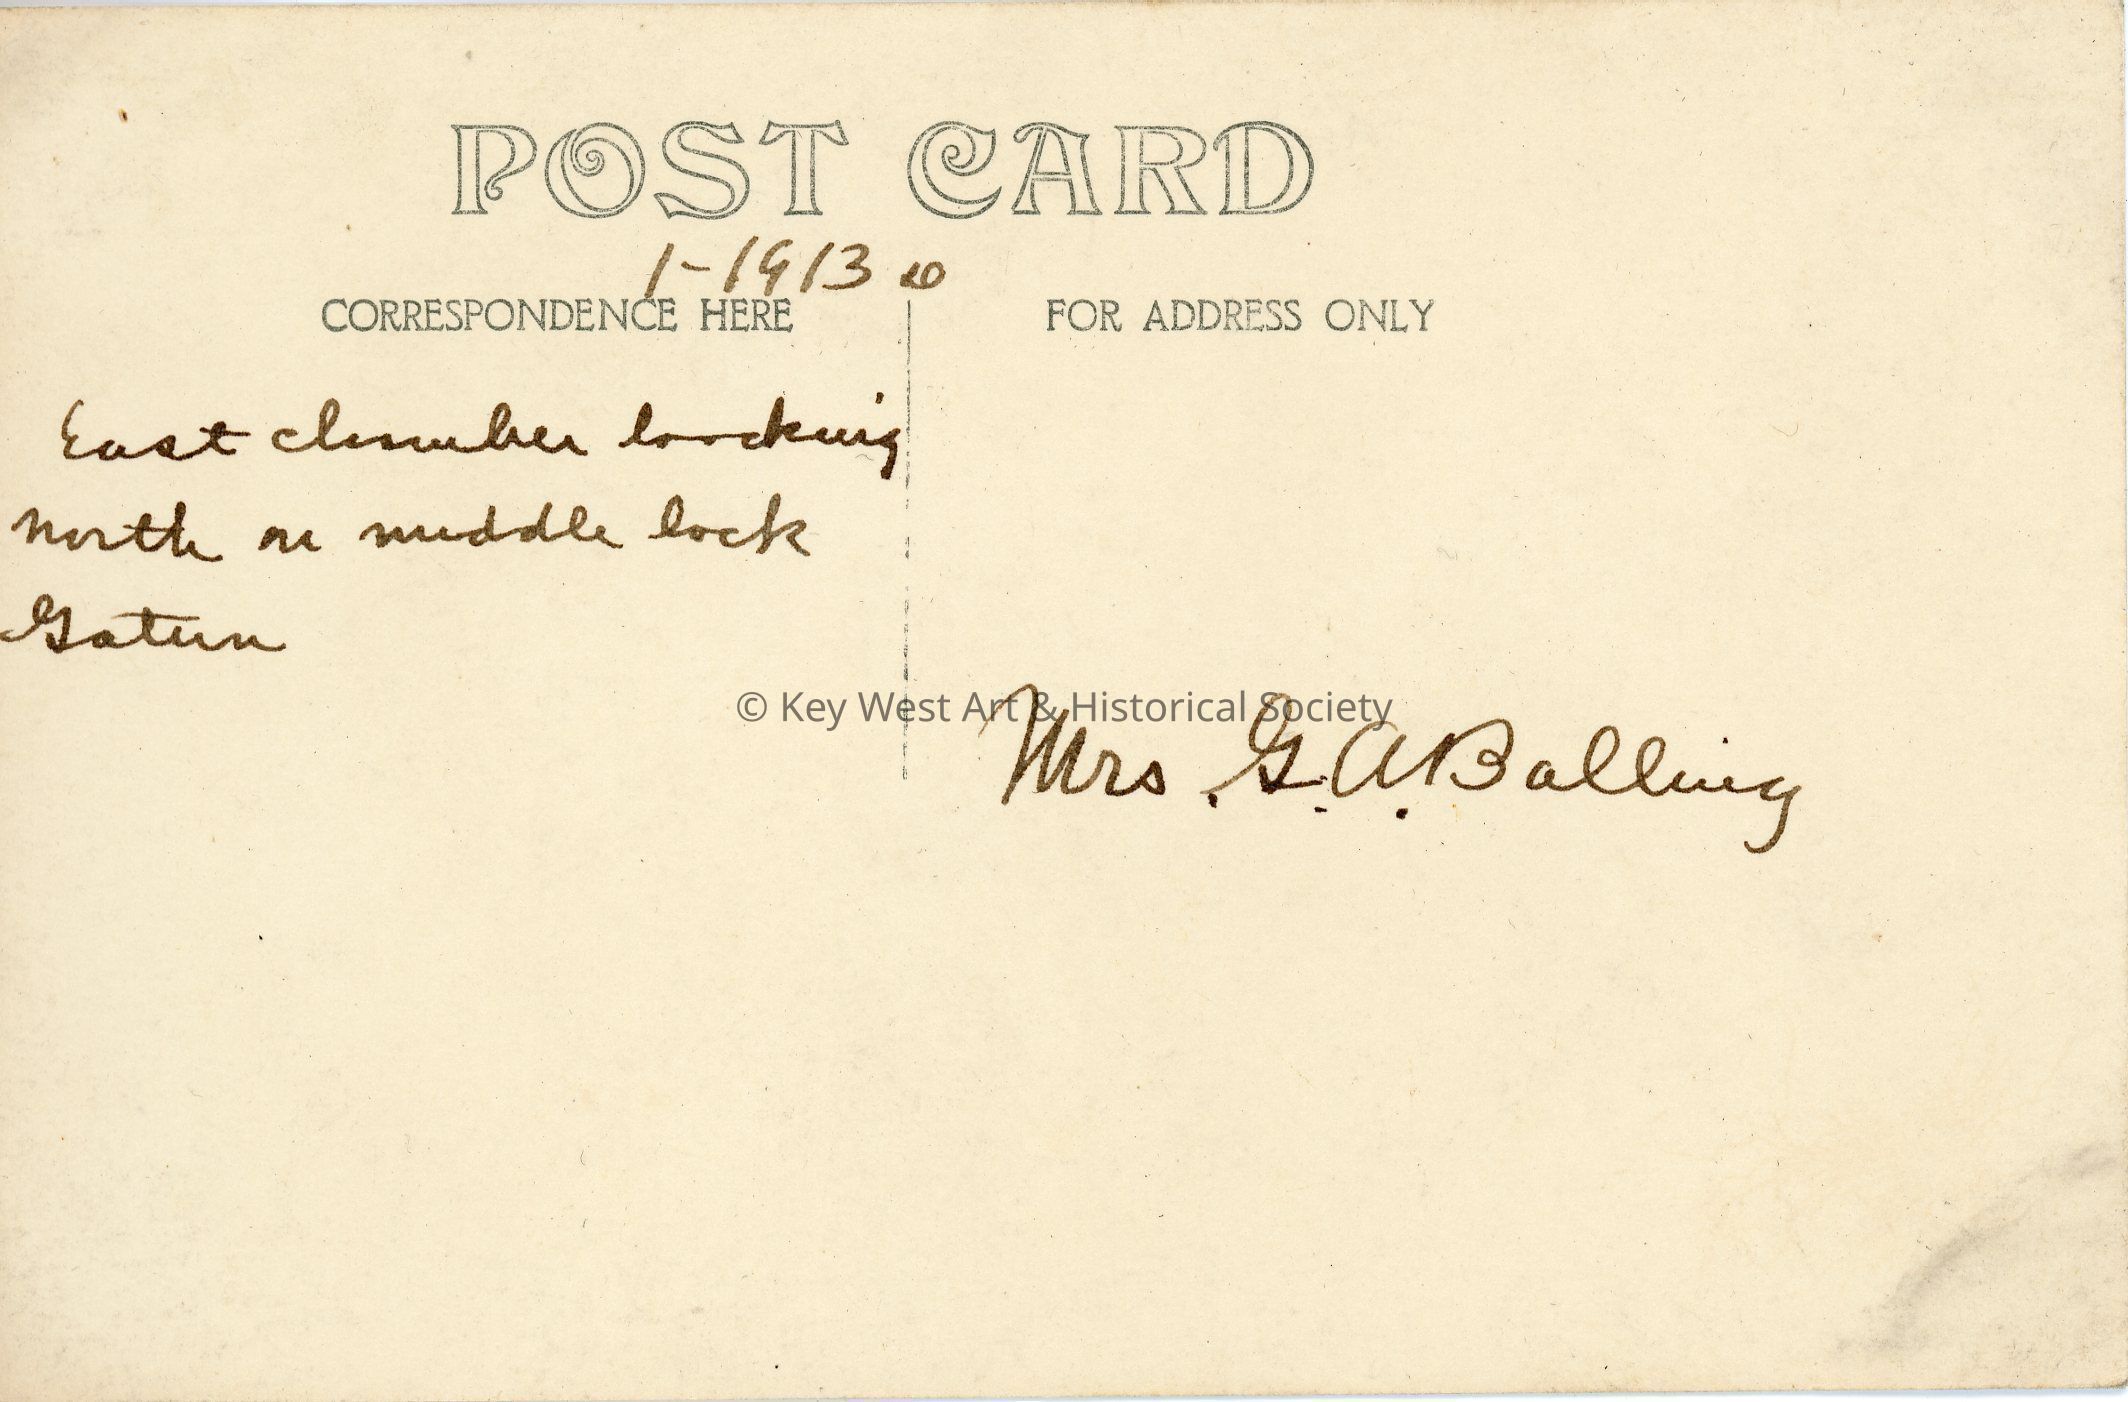 POST CARD
1-1913
CORRESPONDENCE HERE
FOR ADDRESS ONLY
East chamber loocking
north on middle lock
Gatun
© Key West Art & Historical Society
Mrs. G. A. Balling